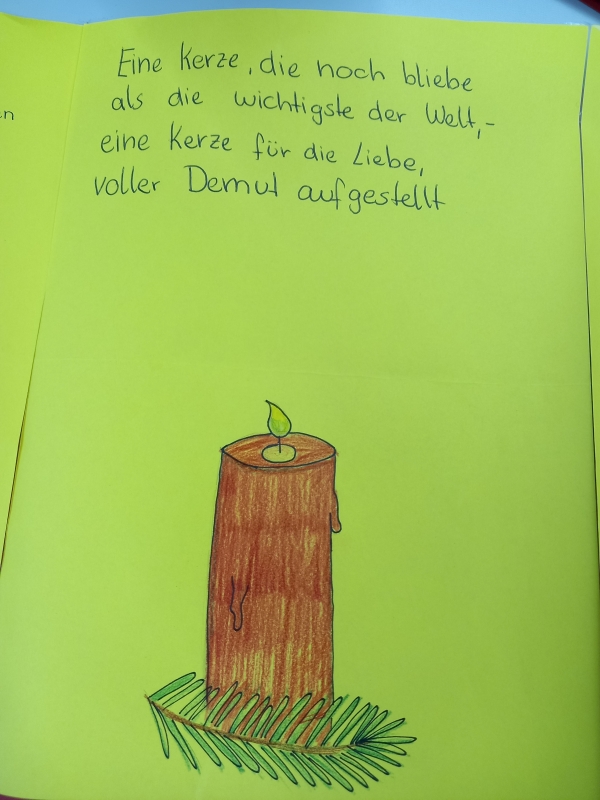 Eine Kerze, die noch bliebe
als die wichtigste der Welt,-
eine Kerze für die Liebe,
voller Demut aufgestellt
en